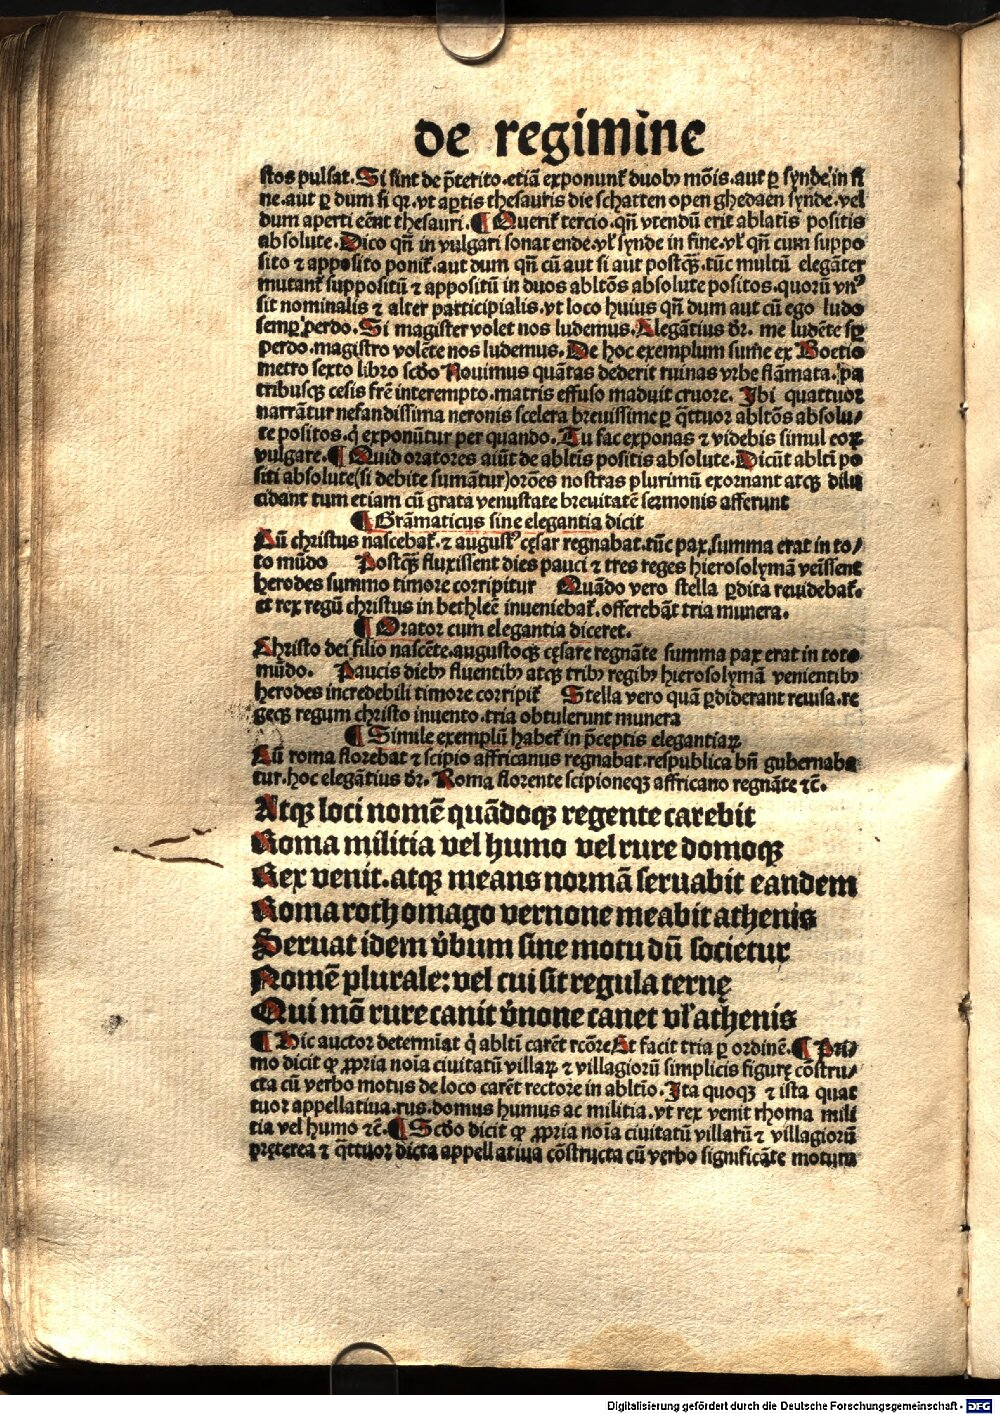 de regimine
stos pulsat. Si sint de p̃terito. etiã exponunt᷑ duobꝰ mõis. aut ꝑ synde in fi
ne. aut ꝑ dum si qꝫ. vt aꝑtis thesauris die schatten open ghedaen synde. vel
dum aperti eẽnt thesauri. ¶ Querit᷑ tercio. qñ vtendũ erit ablatis positis
absolute. Dico qñ in vulgari sonat ende. vl̛ synde in fine. vl̛ qñ cum suppo
sito ⁊ apposito ponit᷑. aut dum qñ cũ aut si aut postqꝫ̃. tũc multũ elegãter
mutant᷑ suppositũ ⁊ appositũ in duos abltõs absolute positos. quorũ vnꝰ
sit nominalis ⁊ alter participialis. vt loco huius qñ dum aut cũ ego ludo
semꝑ perdo. Si magister volet nos ludemus. Alegãtius dr̃. me ludẽte sꝑ
perdo. magistro volẽte nos ludemus. De hoc exemplum sume ex Boetio
metro sexto libro scd̃o Nouimus quãtas dederit ruinas vrbe flãmata. pa
tribusqꝫ cesis frẽ interempto. matris effuso maduit cruore. Ibi quattuor
narrãtur nefandissima neronis scelera breuissime ꝑ q̃ttuor abltõs absolu/
te positos. q̇ exponũtur per quando. Tu fac exponas ⁊ videbis simul eoꝝ
vulgare. ¶ Quid oratores aiũt de abltis positis absolute. Dicũt ablti po
siti absolute(si debite sumãtur)orões nostras plurimũ exornant atqꝫ dilu
cidant tum etiam cũ grata venustate breuitatẽ sermonis afferunt
¶ Grãmaticus sine elegantia dicit
Cũ christus nascebat᷑. ⁊ augustꝰ cęsar regnabat. tũc pax summa erat in to/
to mũdo Postqꝫ̃ fluxissent dies pauci ⁊ tres reges hierosolymã venissent
herodes summo timore corripitur Quãdo vero stella ꝑdita reuidebat᷑.
et rex regũ christus in bethleẽ inueniebat᷑. offerebãt tria munera.
¶ Orator cum elegantia diceret.
Christo dei filio nascẽte. augustoqꝫ cęsare regnãte summa pax erat in toto
mũdo. Paucis diebꝰ fluentibꝰ atqꝫ tribꝰ regibꝰ hierosolymã venientibꝰ
herodes incredebili timore corripit᷑ Stella vero quã ꝑdiderant reuisa. re
geqꝫ regum christo inuento. tria obtulerunt munera
¶ Simile exemplũ habet᷑ in p̃ceptis elegantiaꝝ
Cũ roma florebat ⁊ scipio affricanus regnabat. respublica bñ gubernaba
tur. hoc elegãtius dr̃. Roma florente scipioneqꝫ affricano regnãte ⁊c̃.
Atqꝫ loci nomẽ quãdoqꝫ regente carebit
Roma militia vel humo vel rure domoqꝫ
Rex venit. atqꝫ means normã seruabit eandem
Roma rothomago vernone meabit athenis
Seruat idem v̑bum sine motu dũ societur
Nomẽ plurale: vel cui sit regula ternę
Qui mõ rure canit v̑none canet vl̛ athenis
¶ Hic auctor determiat q̇ ablti carẽt rcõre Et facit tria ꝑ ordinẽ. ¶ Pri/
mo dicit ꝙ ꝓpria noĩa ciuitatũ villaꝝ ⁊ villagiorũ simplicis figurę cõstru/
cta cũ verbo motus de loco carẽt rectore in abltĩo. Ita quoqꝫ ⁊ ista quat
tuor appellatiua. rus. domus humus ac militia. vt rex venit rhoma mili
tia vel humo ⁊c̃. ¶ Scd̃o dicit ꝙ ꝓpria noĩa ciuitatũ villarũ ⁊ villagiorũ
pręterea ⁊ q̃ttuor dicta appellatiua cõstructa cũ verbo significãte motum
Digitalisierung gefördert durch die Deutsche Forschungsgemeinschaft - DFG